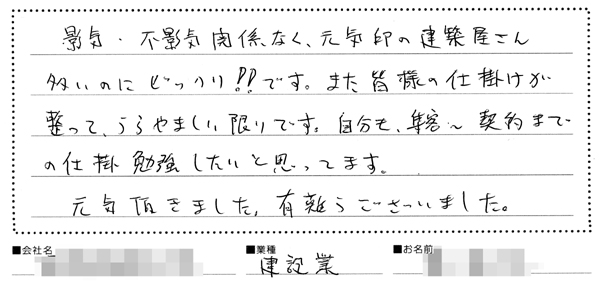 景気・不景気関係なく、元気印の建築屋さん
多いのにビックリ!!です。また皆様の仕掛けが
整って、うらやましい限りです。自分も、集客〜契約まで
の仕掛勉強したいと思ってます。
元気頂きました。有難うございました。
■会社名 ■業種 建設業 ■お名前